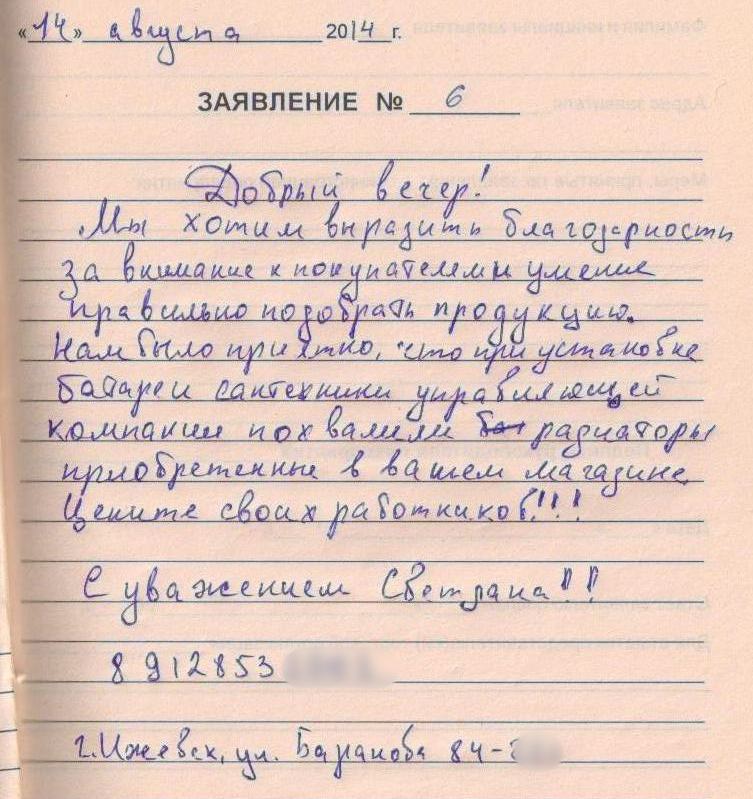 «14» августа 2014 г.
ЗАЯВЛЕНИЕ № 6
Добрый вечер!
Мы хотим выразить благодарность
за внимание к покупателям и умение
правильно подобрать продукцию.
Нам было приятно, что при установке
батареи сантехники управляющей
компании похвалили радиаторы
приобретенные в вашем магазине.
Цените своих работников!!!
С уважением Светлана!!
8912853
г. Ижевск, ул. Баранова 84-